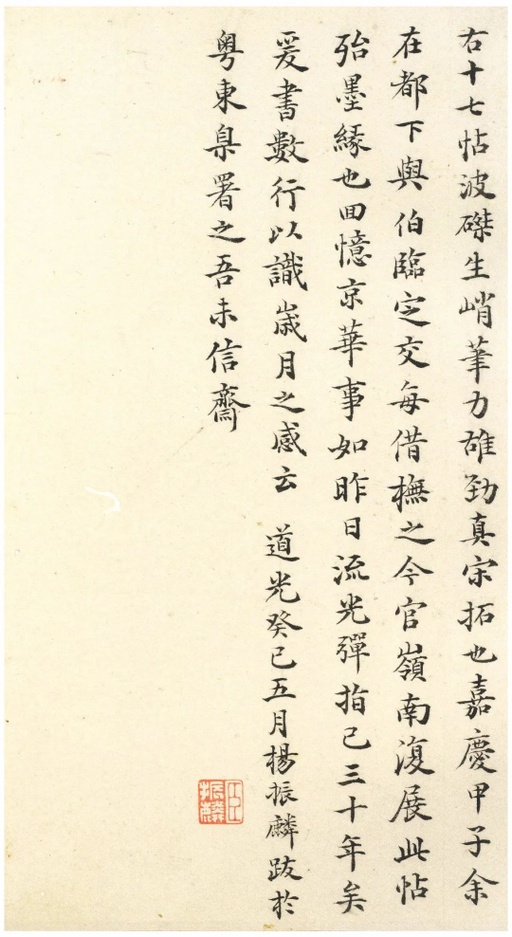 右十七帖波磔生峭筆力雄勁真宋拓也嘉慶甲子余
在都下與伯臨定交每借橅之今官嶺南復展此帖
殆墨緣也回憶京華事如昨日流光彈指已三十年矣
爰書數行以識歲月之感云 道光癸巳五月楊振麟跋於
粵東臬署之吾未信齋
臣
振麟